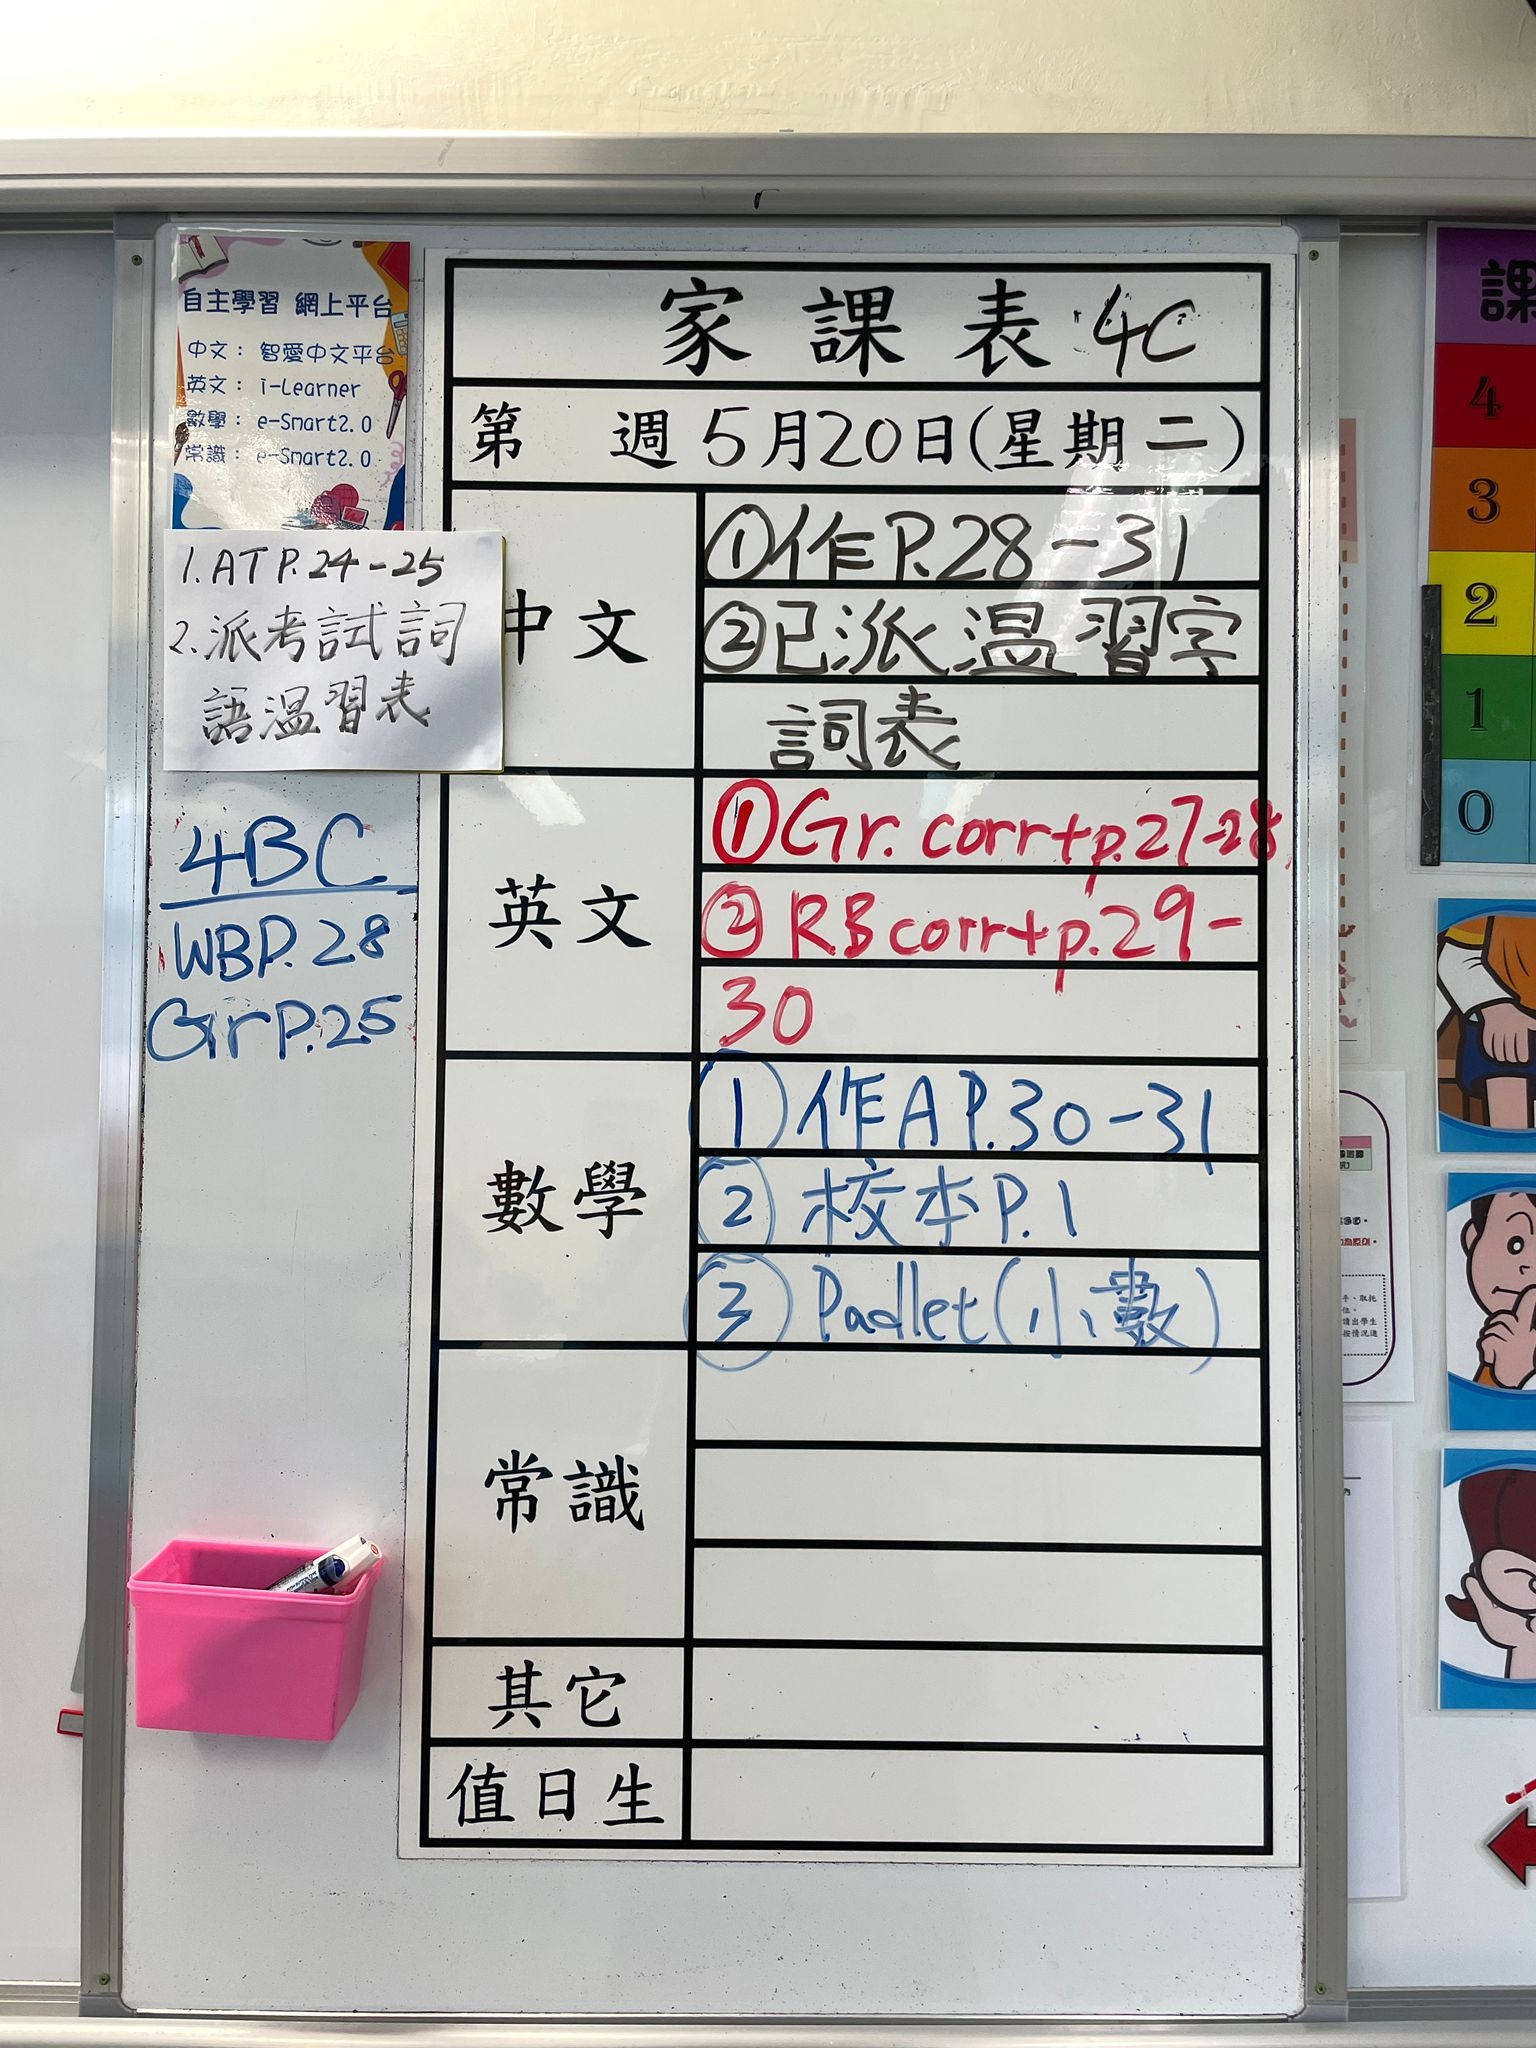 自主學習 網上平台
中文： 智愛中文平台
英文： i-Learner
數學： e-Smart2.0
常識： e-Smart2.0
1. AT P.24-25
2. 派考試詞
語溫習表
4BC
WB P.28
Gr P.25
家課表 4C
第 週 5月20日(星期二)
中文
①作P.28-31
②已派溫習字
詞表
英文
①Gr. corr+p.27-28
②RB corr+p.29-
30
數學
①作A P.30-31
②校本P.1
③Padlet(小數)
常識
其它
值日生
課
4
3
2
1
0